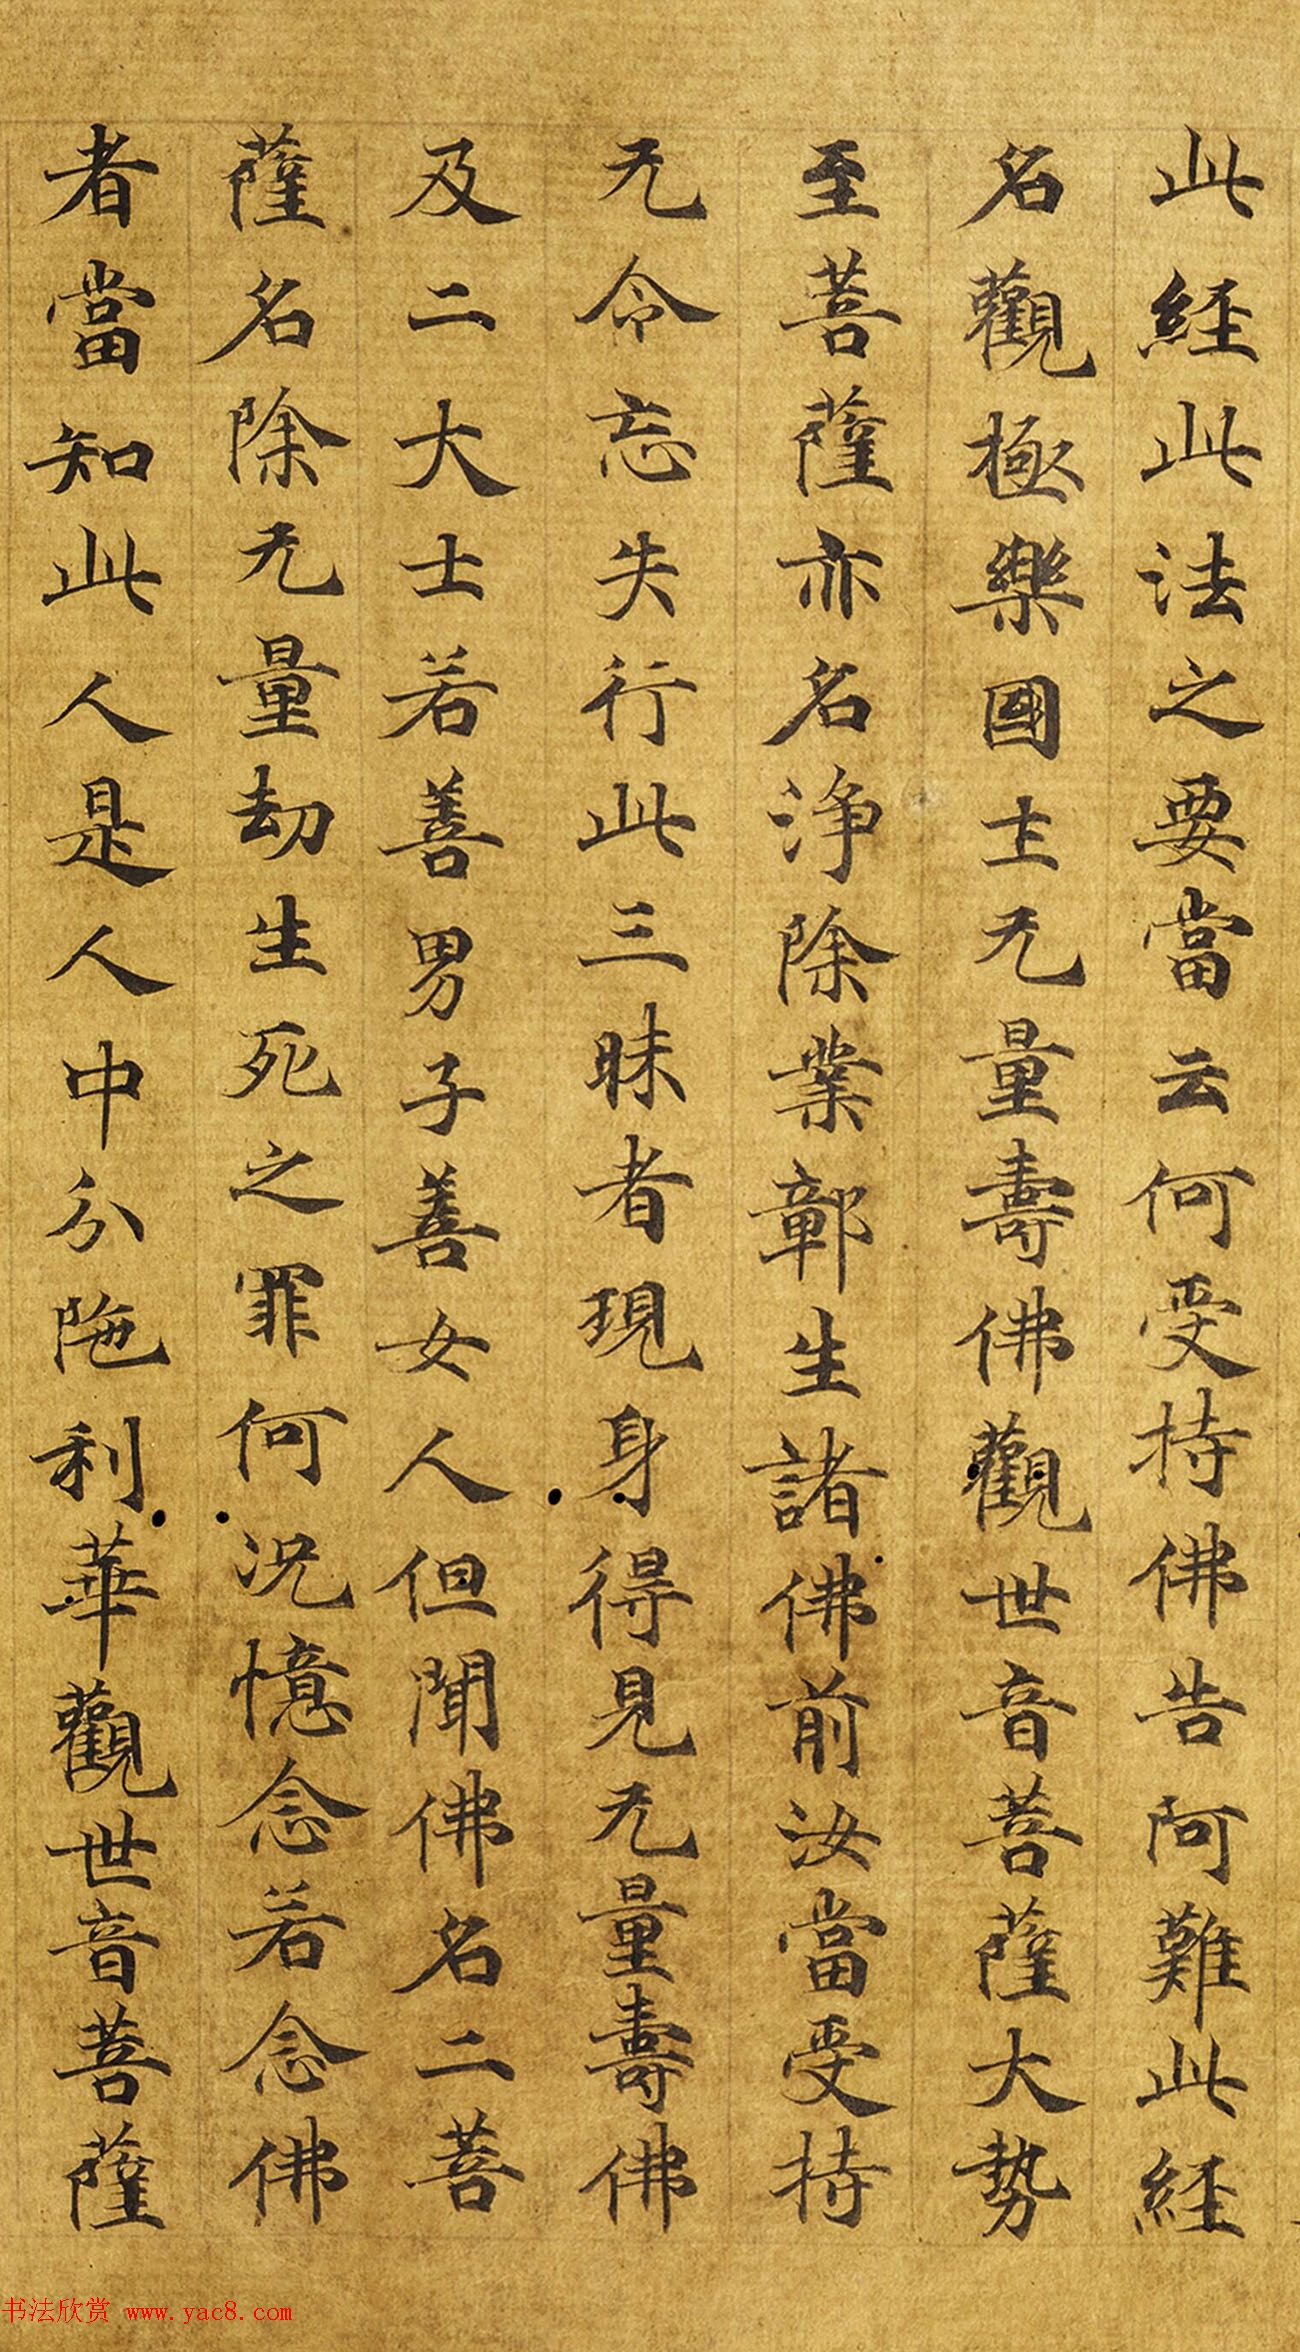 此經此法之要當云何受持佛告阿難此經
名觀極樂國土无量壽佛觀世音菩薩大勢
至菩薩亦名淨除業鄣生諸佛前汝當受持
无令忘失行此三昧者現身得見无量壽佛
及二大士若善男子善女人但聞佛名二菩
薩名除无量劫生死之罪何況憶念若念佛
者當知此人是人中分陁利華觀世音菩薩
书法欣赏 www.yac8.com